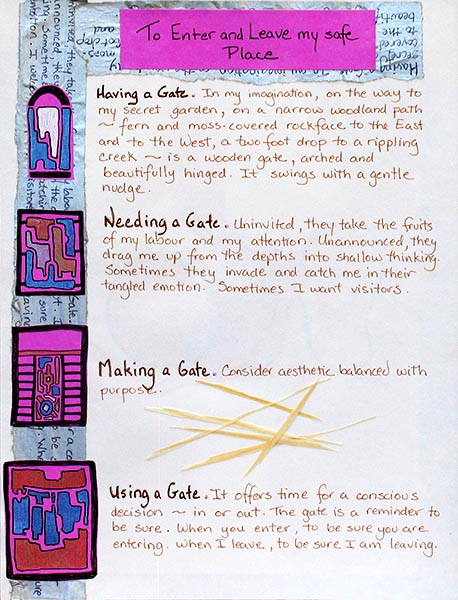 To Enter and Leave my safe
Place
Having a Gate. In my imagination, on the way to
my secret garden, on a narrow woodland path
~ fern and moss-covered rockface to the East
and to the West, a two-foot drop to a rippling
creek ~ is a wooden gate, arched and
beautifully hinged. It swings with a gentle
nudge.
Needing a Gate. Uninvited, they take the fruits
of my labour and my attention. Unannounced, they
drag me up from the depths into shallow thinking.
Sometimes they invade and catch me in their
tangled emotion. Sometimes I want visitors.
Making a Gate. Consider aesthetic balanced with
purpose.
Using a Gate. It offers time for a conscious
decision ~ in or out. The gate is a reminder to
be sure. When you enter, to be sure you are
entering. When I leave, to be sure I am leaving.